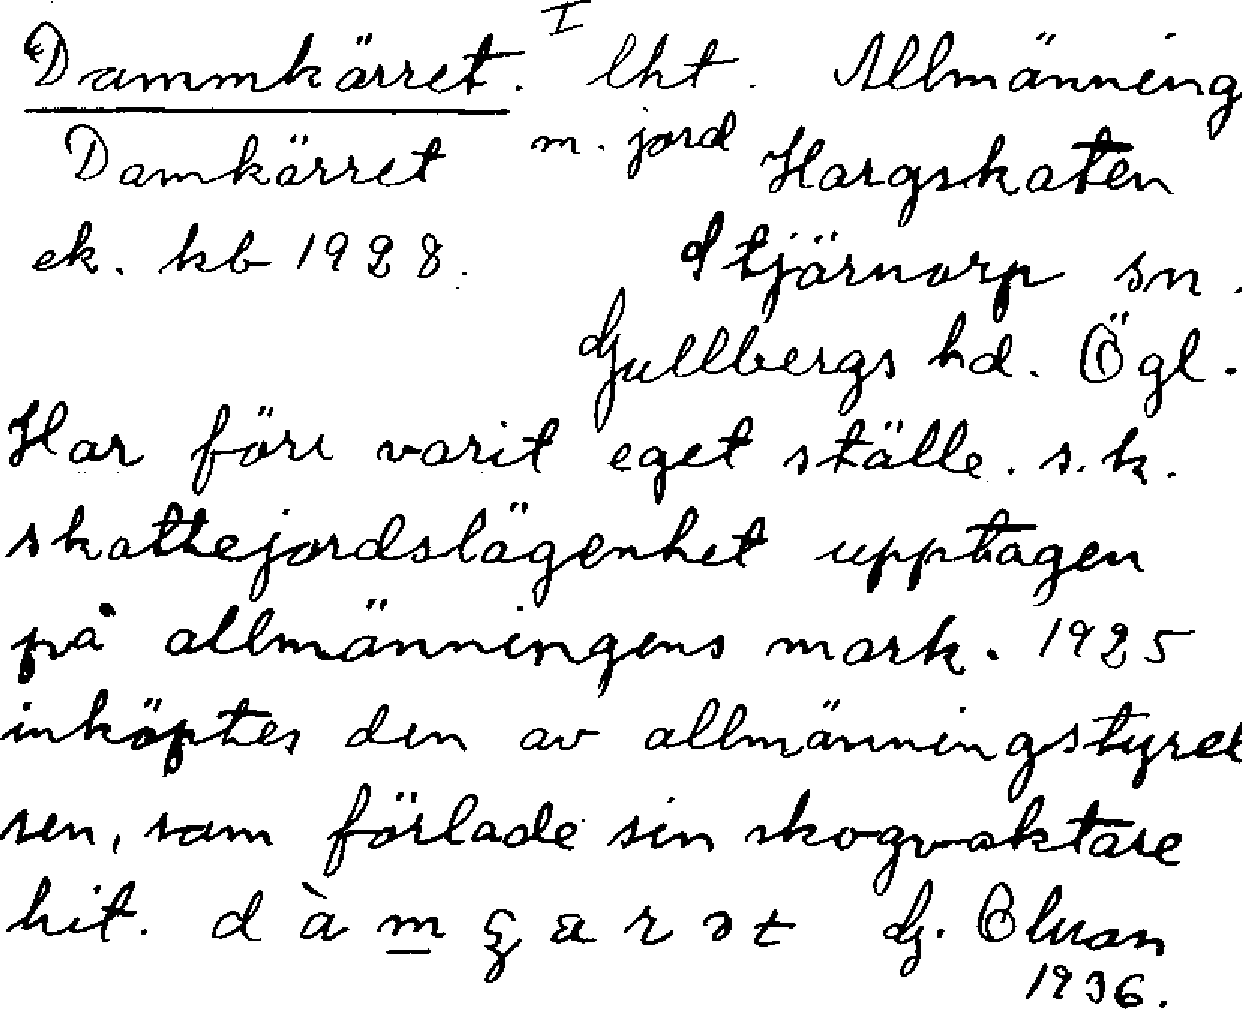 I
Dammkärret. lht. Allmänning
Damkärret m. jord Hargskaten
ek. kb 1928. Stjärnorp sn.
Gullbergs hd. Ögl.
Har förr varit eget ställe. s.k.
skattejordslägenhet upptagen
på allmänningens mark. 1925
inköptes den av allmänningstyrel
sen, som förlade sin skogvaktare
hit. d à m ɕ a r ɔ t G.
1936.